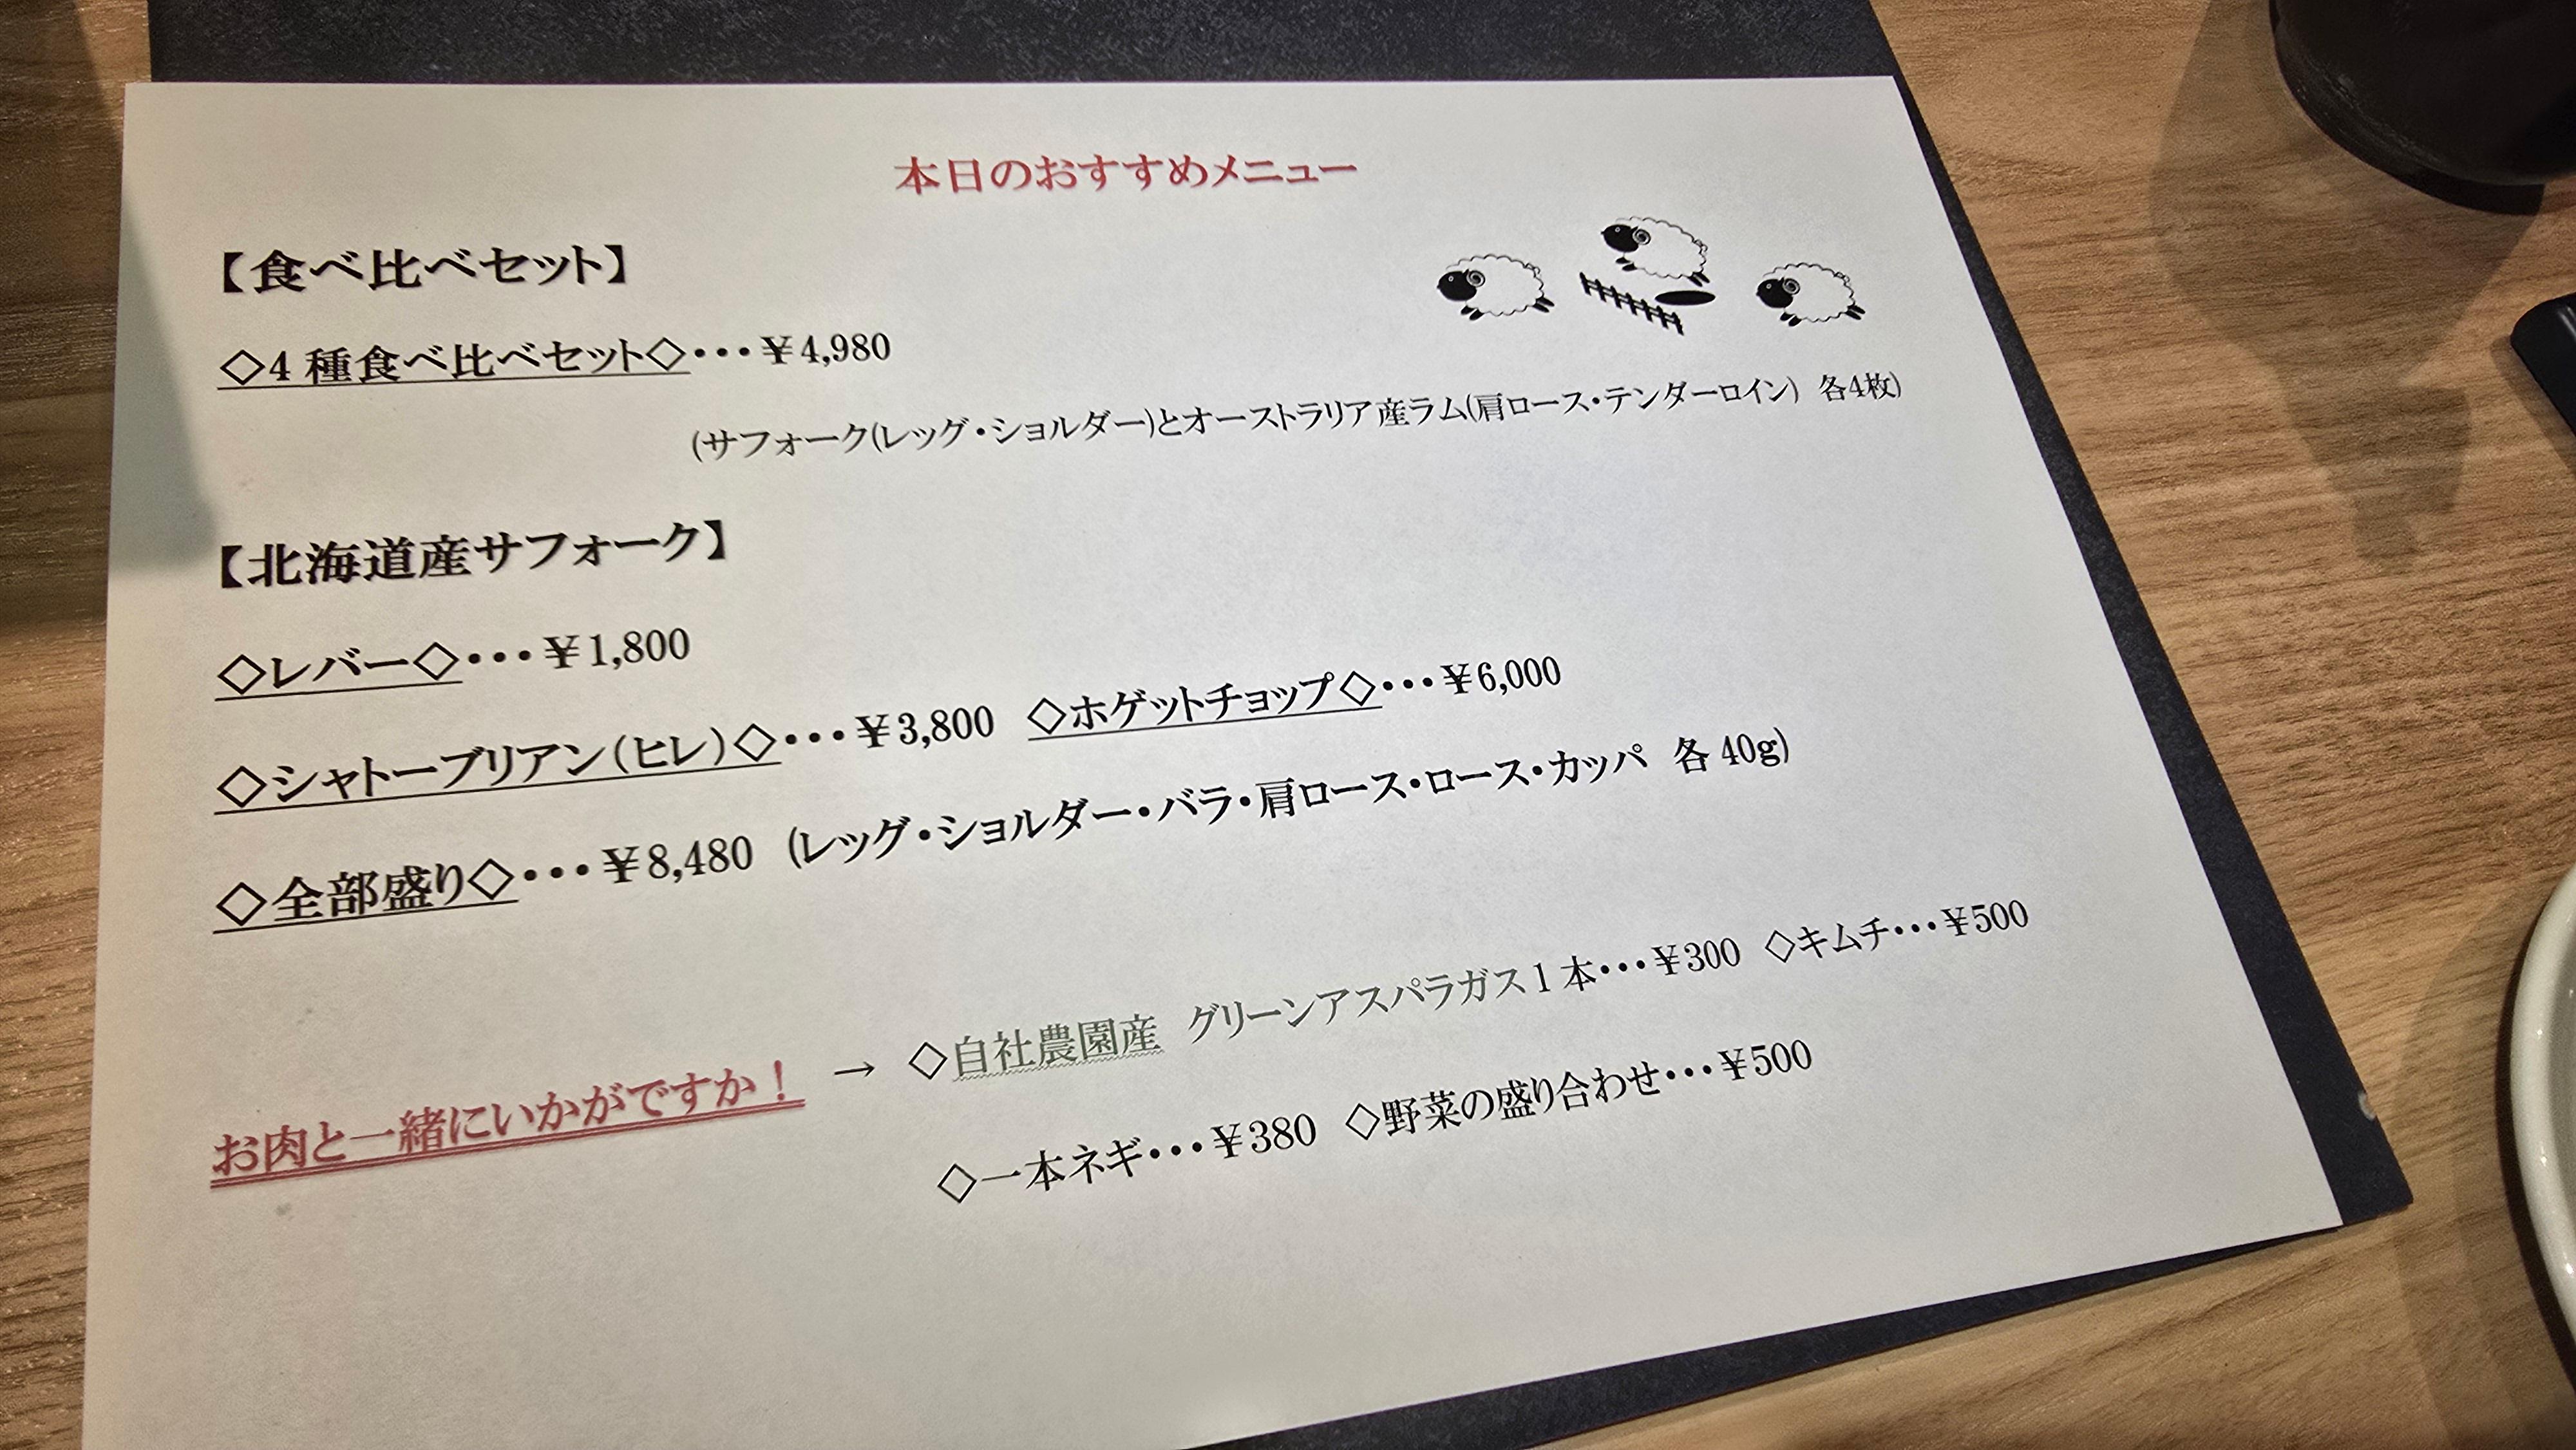 本日のおすすめメニュー
【食べ比べセット】
◇4 種食べ比べセット◇・・・￥4,980
(サフォーク(レッグ・ショルダー)とオーストラリア産ラム(肩ロース・テンダーロイン) 各4枚)
【北海道産サフォーク】
◇レバー◇・・・￥1,800
◇シャトーブリアン(ヒレ)◇・・・￥3,800 ◇ホゲットチョップ◇・・・￥6,000
◇全部盛り◇・・・￥8,480 (レッグ・ショルダー・バラ・肩ロース・ロース・カッパ 各 40g)
お肉と一緒にいかがですか！ → ◇自社農園産 グリーンアスパラガス1 本・・・￥300 ◇キムチ・・・￥500
◇一本ネギ・・・￥380 ◇野菜の盛り合わせ・・・￥500